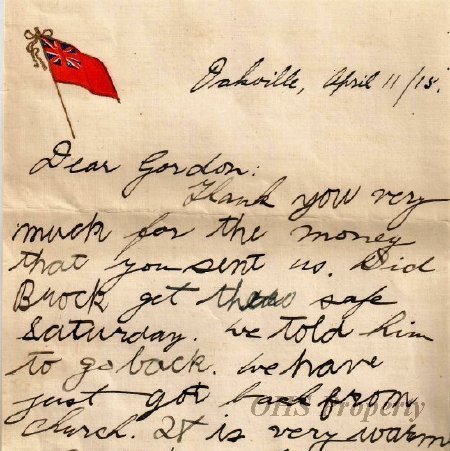 Oakville, April 11/15.
Dear Gordon:
Thank you very
much for the money
that you sent us. Did
Brock get safe
Saturday. We told him
to go back. We have
just got back from
Church. It is very warm
OHS Property